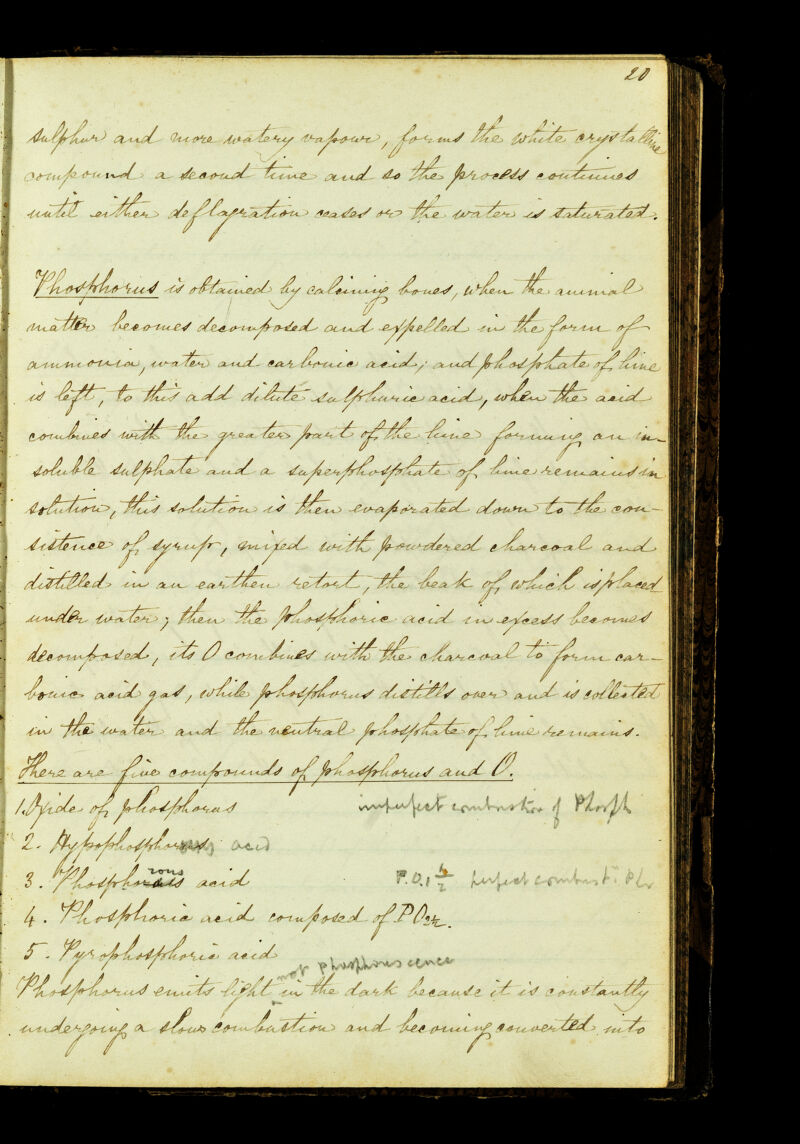 20
sulphur and more watery vapour, forms the white crystalline
compound a second time and so the process continues
until either deflagration ceases or the water is saturated.
Phosphorus is obtained by calcining bones, when the animal
matter becomes decomposed and expelled in the form of
ammonia, water and carbonic acid; and phosphate of lime
is left, to this add dilute sulphuric acid, when the acid
combines with the greater part of the lime forming an in-
soluble sulphate and a superphosphate of lime remains in
solution, this solution is then evaporated down to the con-
sistence of syrup, mixed with powdered charcoal and
distilled in an earthen retort, the beak of which is placed
under water; then the phosphoric acid in excess becomes
decomposed, its O combines with the charcoal to form car-
bonic acid gas, while phosphorus distills over and is collected
in the water and the neutral phosphate of lime remains.
There are five compounds of phosphorus and O.
1. Oxide of phosphorus imperfect combustion of Phosph
2. Hypophosphorous acid
3. Phosphorous acid P.O.1½ perfect combust. Ph
4. Phosphoric acid composed of PO2½.
5. Pyrophosphoric acid
not phosphorescence
Phosphorus emits light in the dark because it is constantly
undergoing a slow combustion and becoming converted into